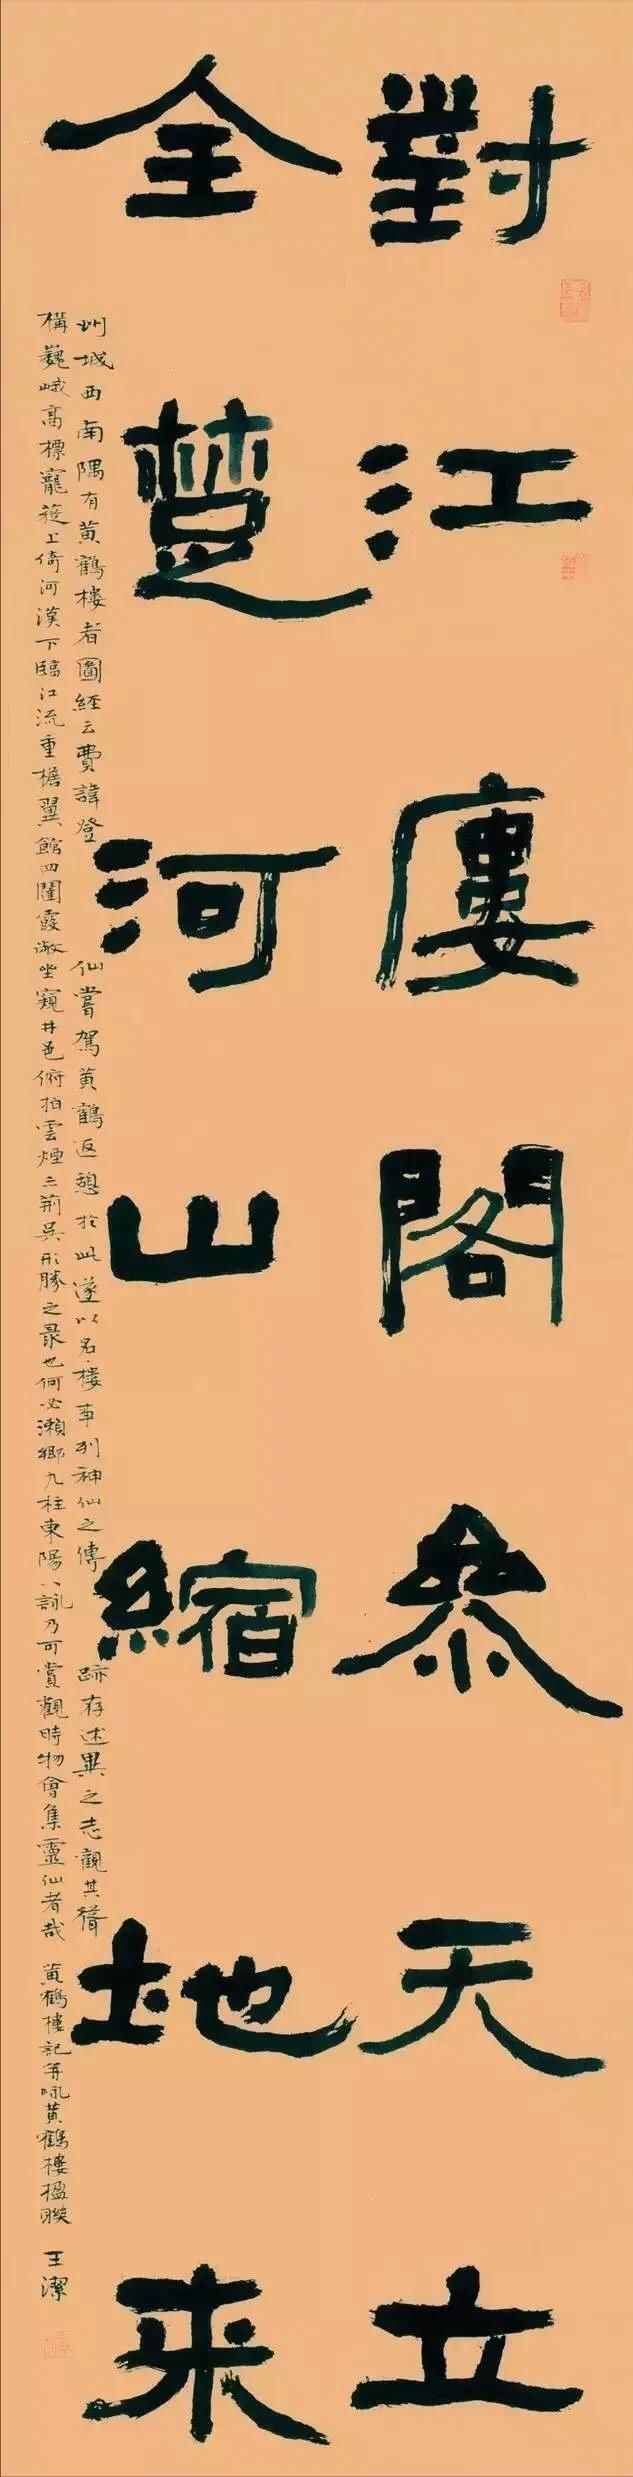 對江廔閣參天立
全楚河山縮地來
州城西南隅有黃鶴樓者圖經云費諱登仙嘗駕黃鶴返憩於此遂以名樓事列神仙之傳跡存述異之志觀其聳
構巍峨高標寵蓯上倚河漢下臨江流重檐翼館四闥霞敞坐窺井邑俯拍雲煙亦荊吳形勝之最也何必瀨鄉九柱東陽八詠乃可賞觀時物會集靈仙者哉 黃鶴樓記并咏黃鶴樓楹聯 王潔